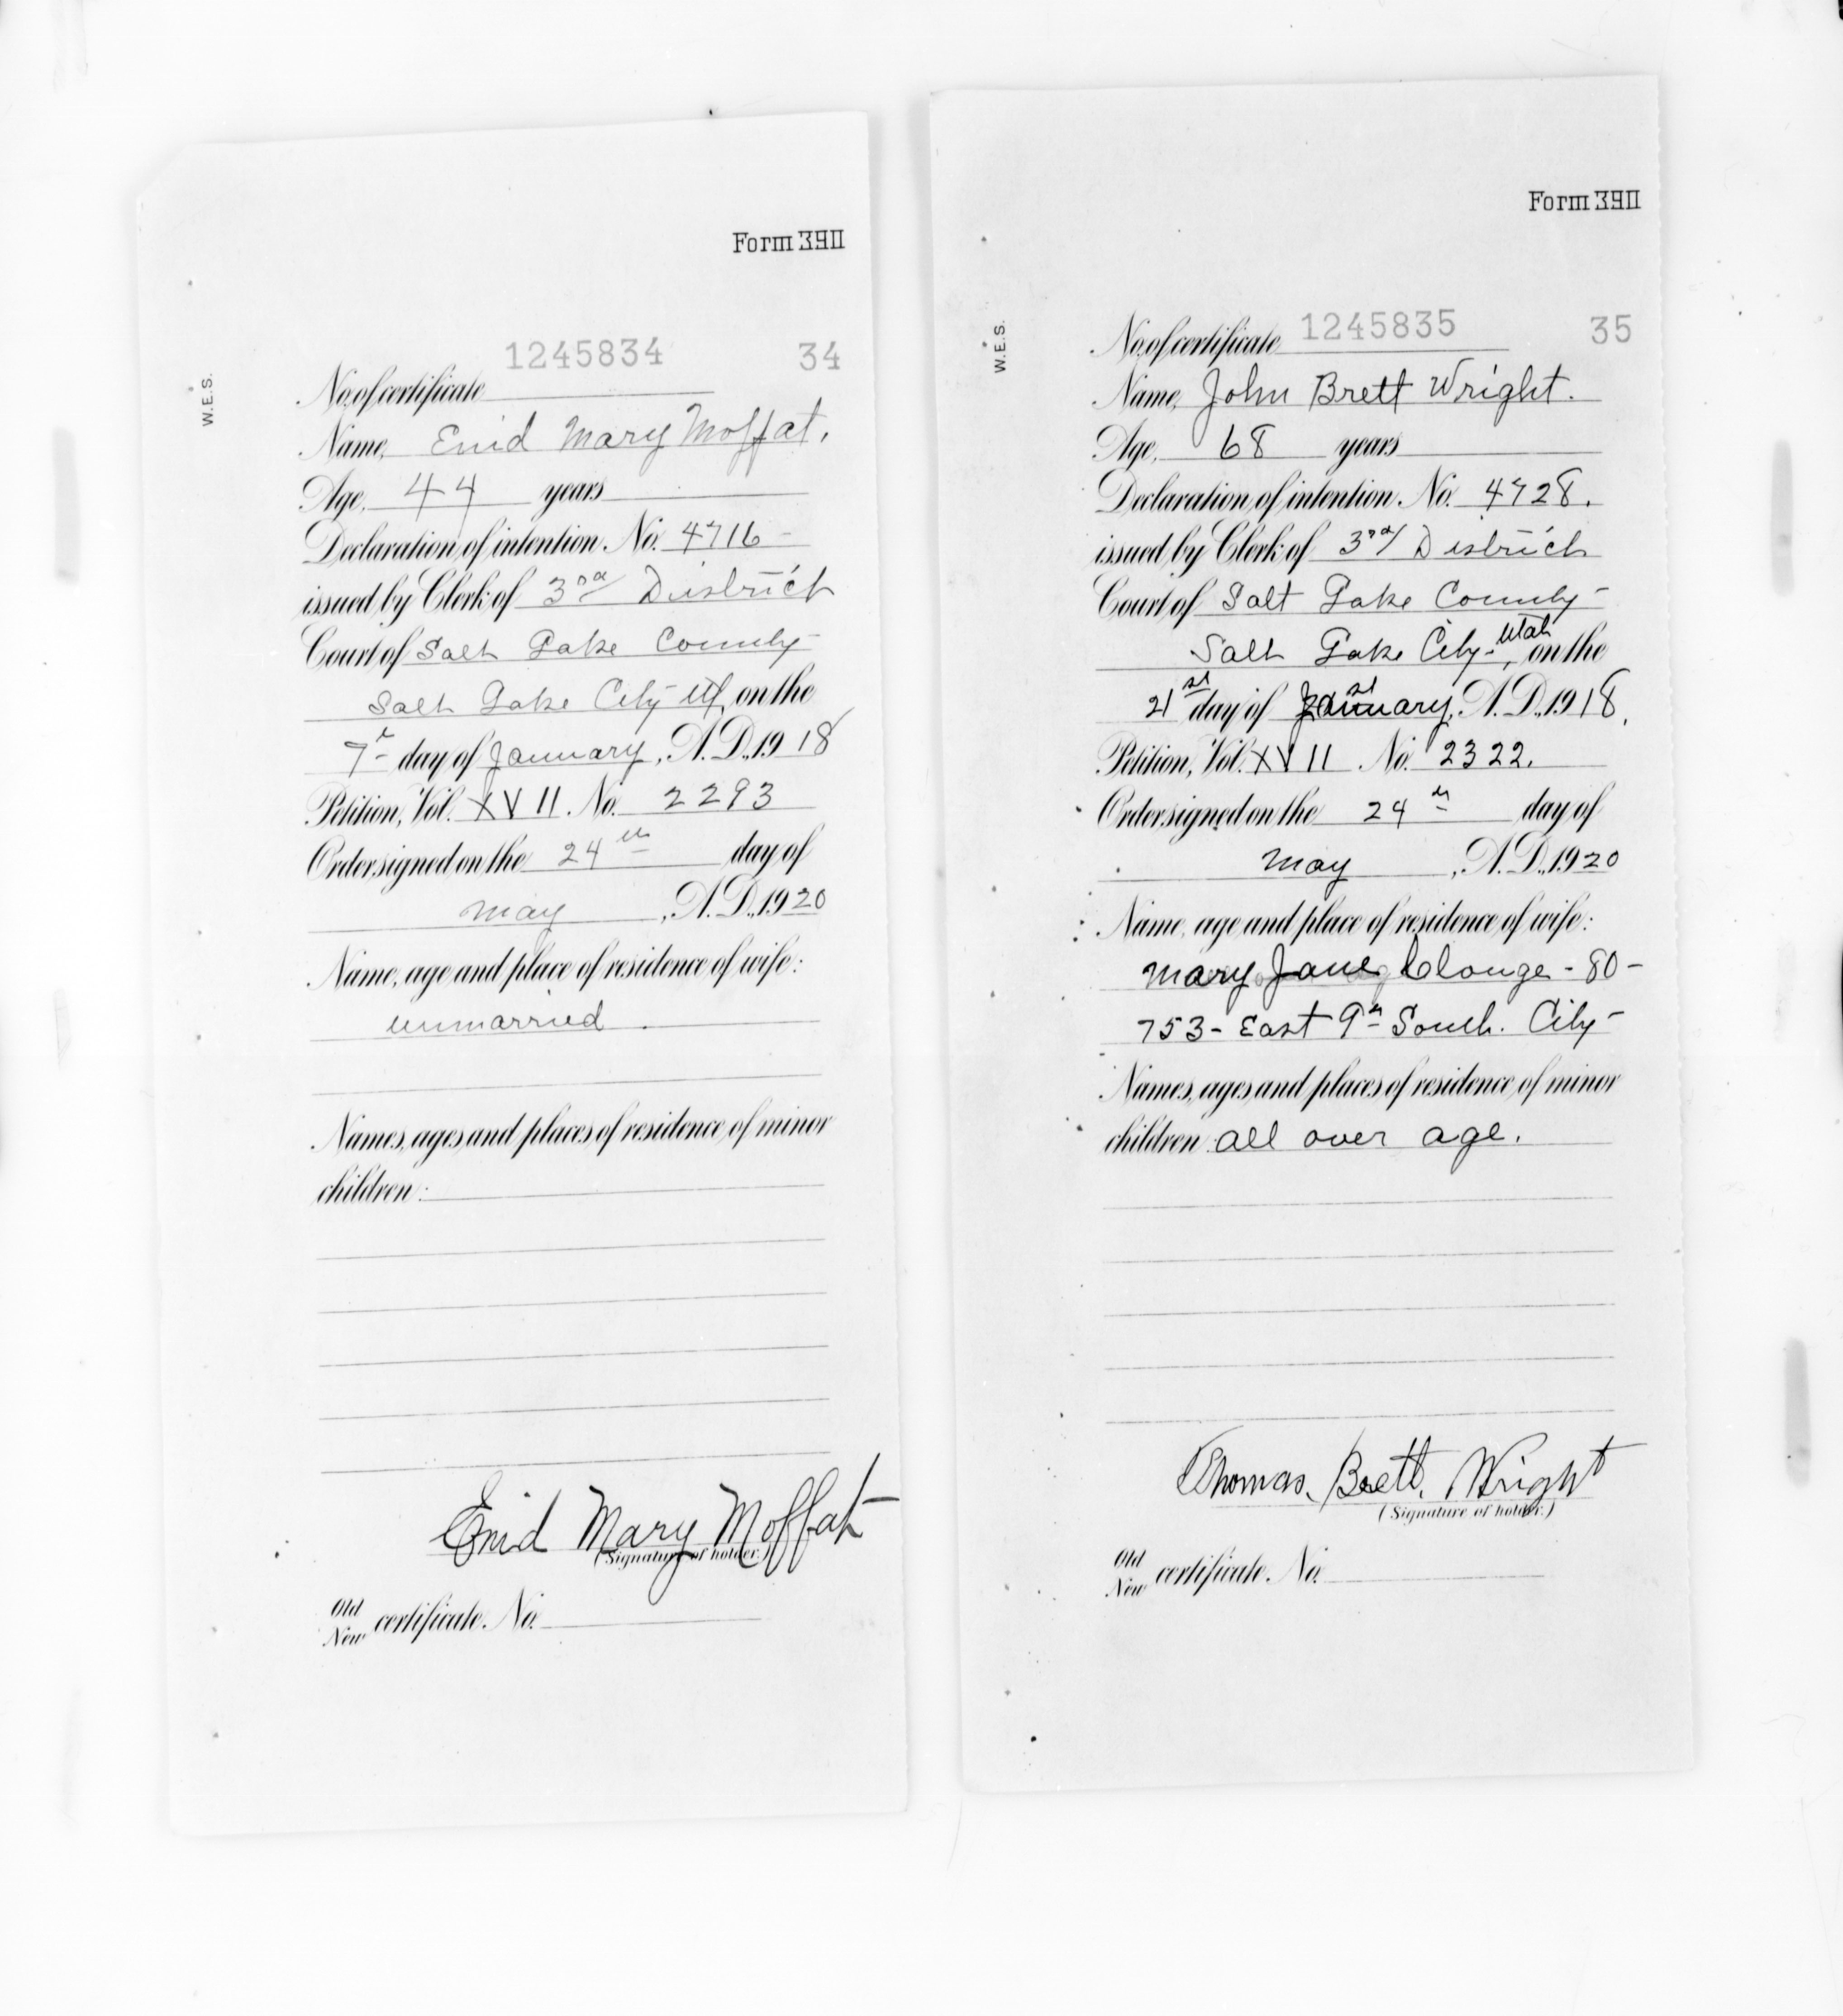 Form 390
W.E.S.
No. of certificate 1245834 34
Name, Enid Mary Moffat.
Age, 44 years
Declaration of intention No. 4716 -
issued by Clerk of 3rd District
Court of Salt Lake County
Salt Lake City Ut, on the
7th day of January, A.D., 1918
Petition, Vol. XVII. No. 2293
Order signed on the 24th day of
May, A.D., 1920
Name, age and place of residence of wife:
unmarried.
Names, ages and places of residence of minor
children:
Enid Mary Moffat
(Signature of holder.)
Old
New certificate. No.
Form 390
W.E.S.
No. of certificate 1245835 35
Name, John Brett Wright.
Age, 68 years
Declaration of intention No. 4728.
issued by Clerk of 3rd District
Court of Salt Lake County -
Salt Lake City - Utah, on the
21st day of January, A.D., 1918.
Petition, Vol. XVII. No. 2322.
Order signed on the 24th day of
May, A.D., 1920
Name, age and place of residence of wife:
Mary Jane - 80 -
753 - East 9th South. City -
Names, ages and places of residence of minor
children: all over age.
Thomas. Brett. Wright
(Signature of holder.)
Old
New certificate. No.